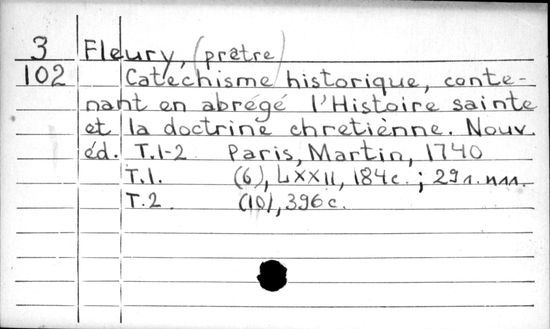 3 Fleury, (prêtre)
102 Catéchisme historique, conte-
nant en abrégé l'Histoire sainte
et la doctrine chretiènne. Nouv.
éd. T.1-2 Paris, Martin, 1740
T.1. (6), LXXII, 184c.; 29л. илл.
T.2 (10), 396c.